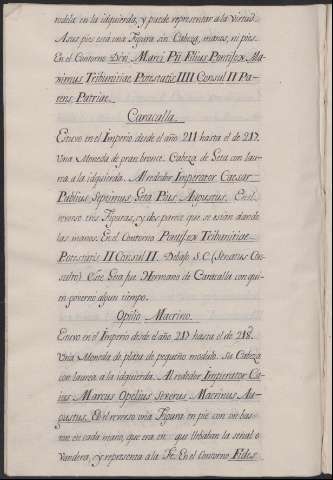 ndela en la idquierda, y puede representar a la Virtud.
A sus pies está una Figura sin Cabeza, manos, ni pies.
En el Contorno Divi Marci Pii Filius Pontifex Ma-
ximus Tribunitiae Potestatis IIII Consul II Pa-
rens Patriae.
Caracalla.
Estuvo en el Imperio desde el año 211 hasta el de 217.
Una Moneda de gran bronce. Cabeza de Geta con lau-
rea a la idquierda. Al rededor Imperator Caesar
Publius Septimus Geta Pius Augustus. En el
reverso tres Figuras, y dos parece que se están dando
las manos. En el Contorno Pontifex Tribunitiae
Potestatis II Consul II. Debajo S.C. (Senatus Con-
sulto) Este Geta fue Hermano de Caracalla con qui-
en governo algun tiempo.
Opilio Macrino.
Estuvo en el Imperio desde el año 217 hasta el de 218.
Una Moneda de plata de pequeño modulo. Su Cabeza
con laurea a la idquierda. Al rededor Imperator Ca-
ius Marcus Opelius Severus Macrinus Au-
gustus. En el reverso una Figura en pie con un bas-
ton en cada mano, que era en que llebaban la señal o
Vandera, y representa a la Fe. En el Contorno Fides